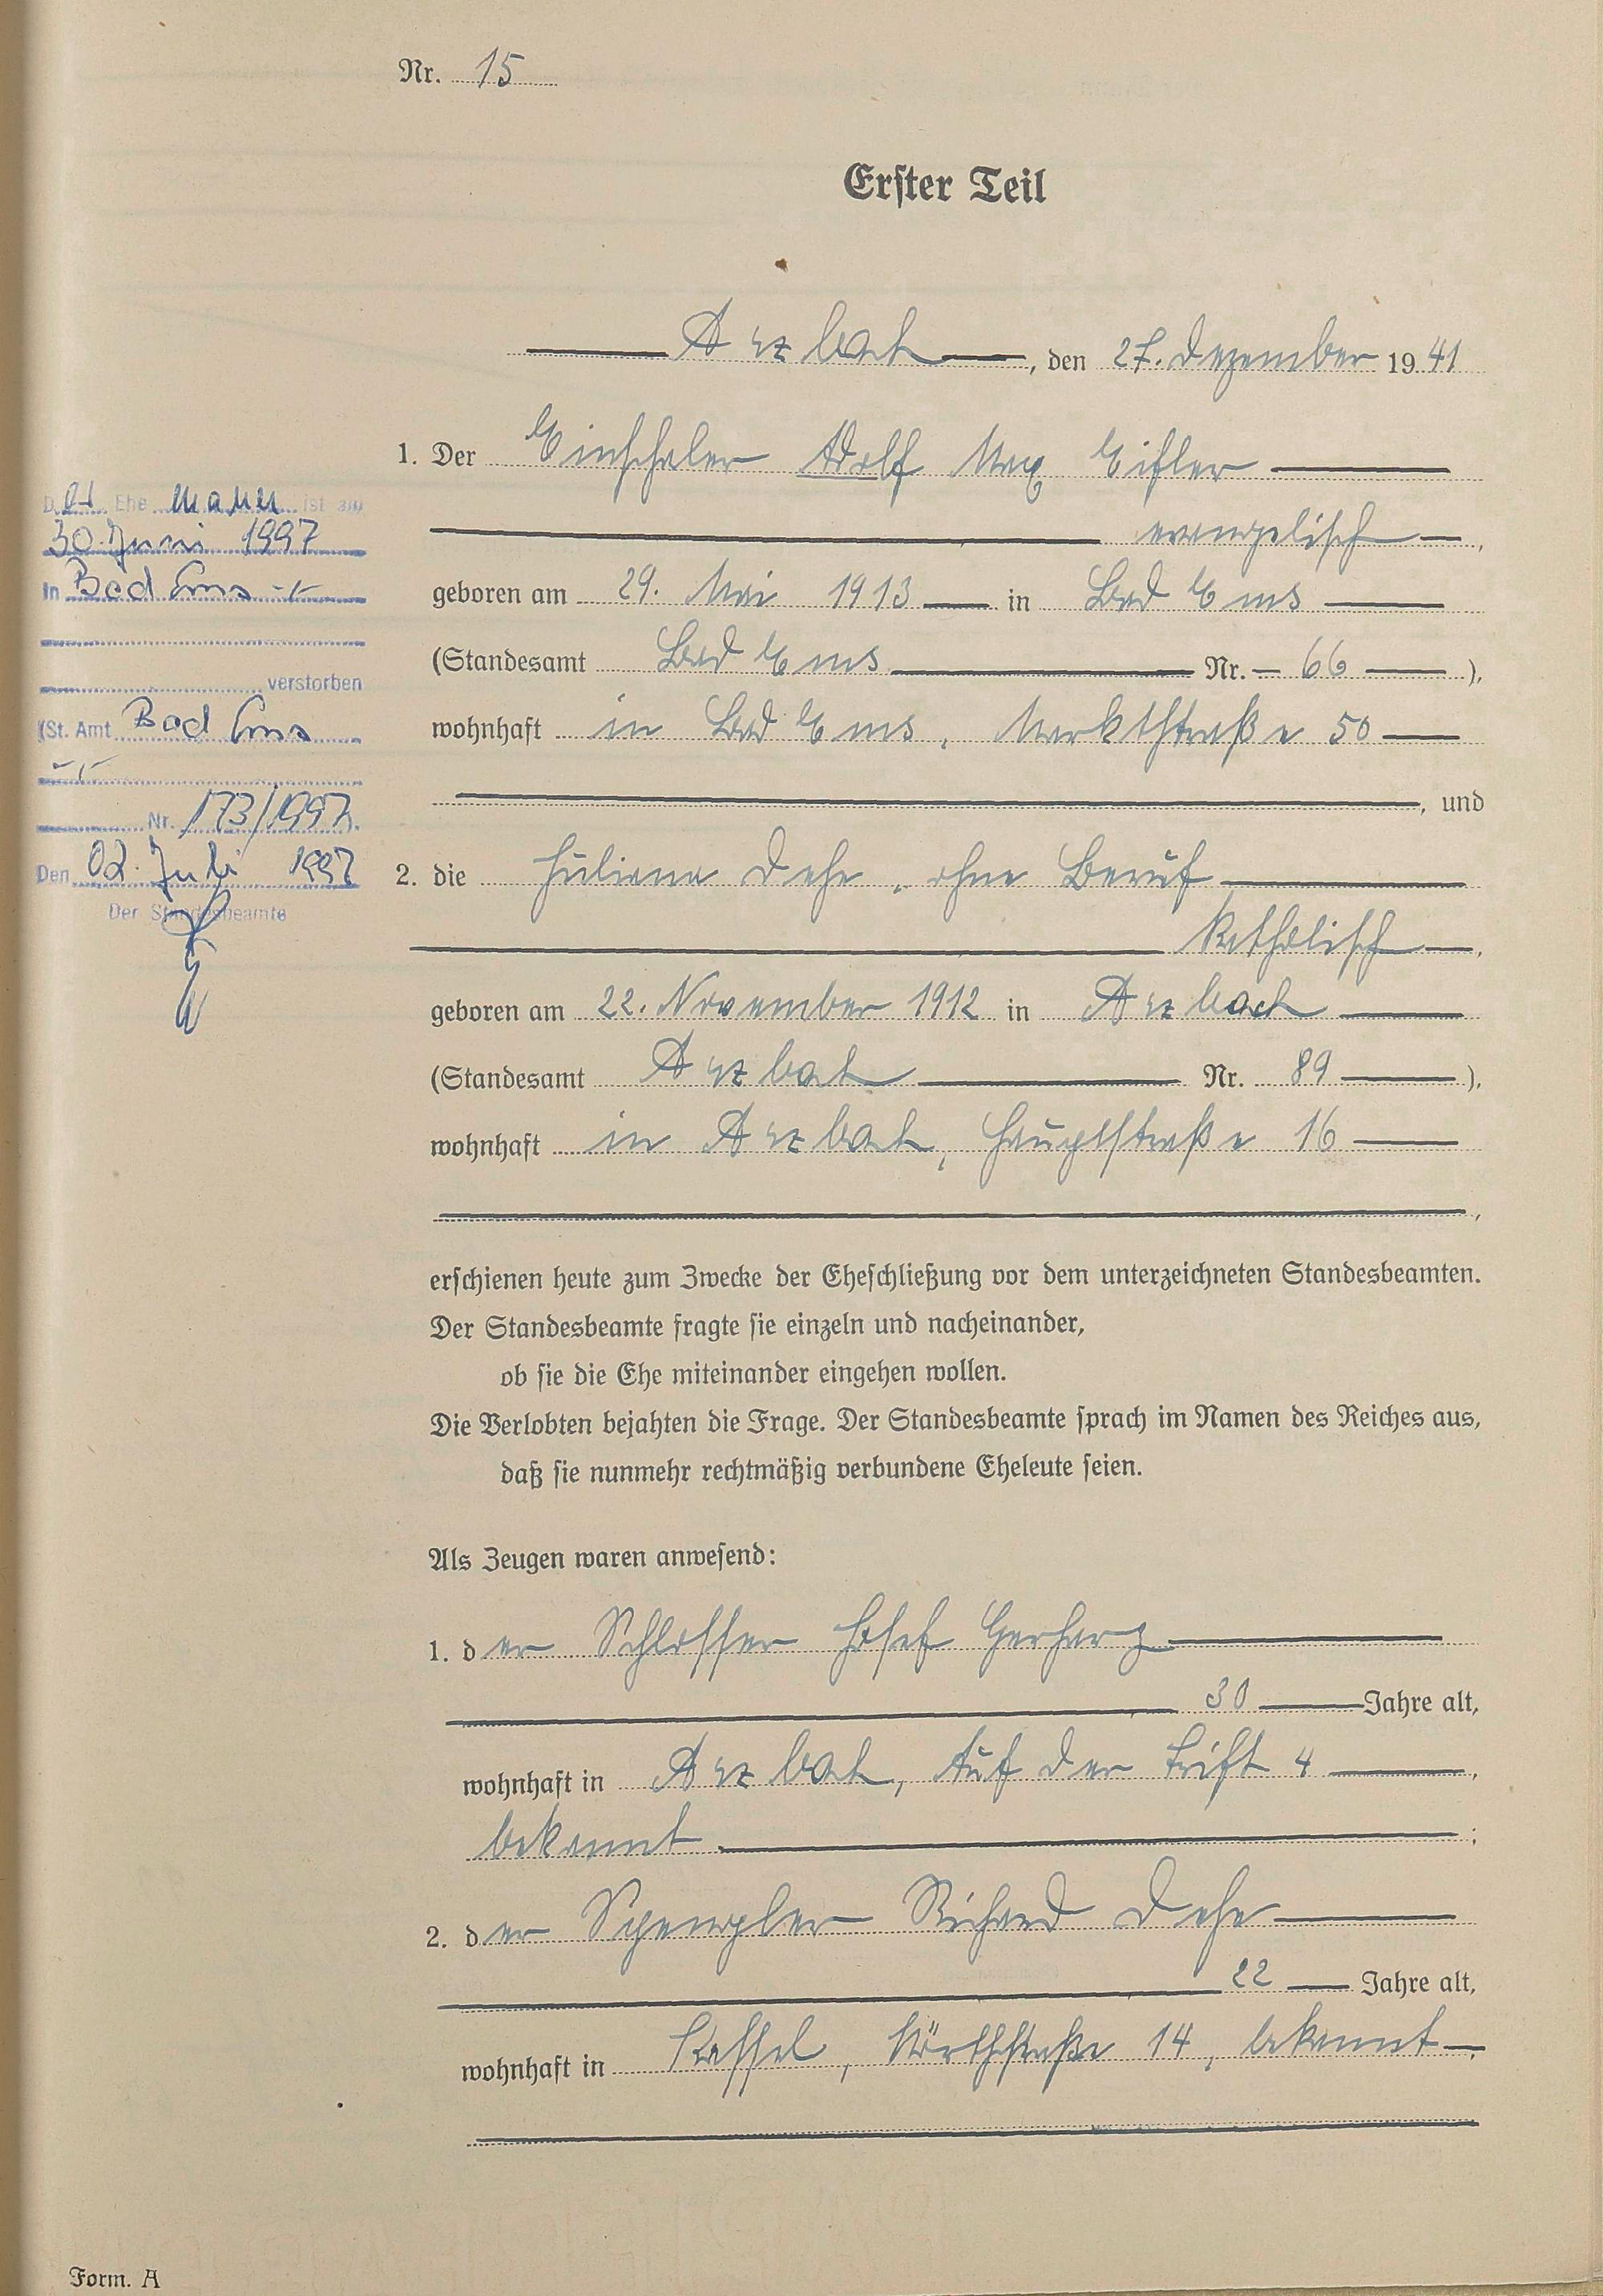 Nr. 15
Erster Teil
Arzbach, den 27. Dezember 1941
1. Der Einschaler Adolf Max Eifler
evangelisch,
geboren am 29. Mai 1913 in Bad Ems
(Standesamt Bad Ems Nr. 66),
wohnhaft in Bad Ems, Marktstraße 50
, und
2. die Juliana Dehe, ohne Beruf
katholisch,
geboren am 22. November 1912 in Arzbach
(Standesamt Arzbach Nr. 89),
wohnhaft in Arzbach, Hauptstraße 16
,
erschienen heute zum Zwecke der Eheschließung vor dem unterzeichneten Standesbeamten.
Der Standesbeamte fragte sie einzeln und nacheinander,
ob sie die Ehe miteinander eingehen wollen.
Die Verlobten bejahten die Frage. Der Standesbeamte sprach im Namen des Reiches aus,
daß sie nunmehr rechtmäßig verbundene Eheleute seien.
Als Zeugen waren anwesend:
1. der Schlosser Josef Gerharz
30 Jahre alt,
wohnhaft in Arzbach, Auf der Trift 4,
bekannt;
2. der Spengler Richard Dehe
22 Jahre alt,
wohnhaft in Kassel, Wörthstraße 14, bekannt.
Form. A
Der Ehemann ist am
30. Juni 1997
in Bad Ems -/-
verstorben
(St. Amt Bad Ems
-/-
Nr. 173/1997).
Den 02. Juli 1997
Der Standesbeamte